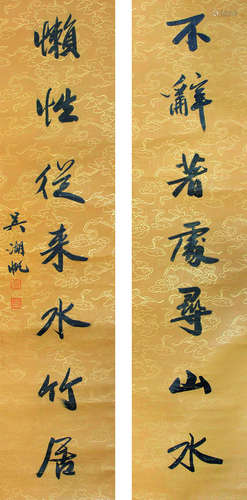 不辭著處尋山水
懶性從来水竹居
吳湖帆